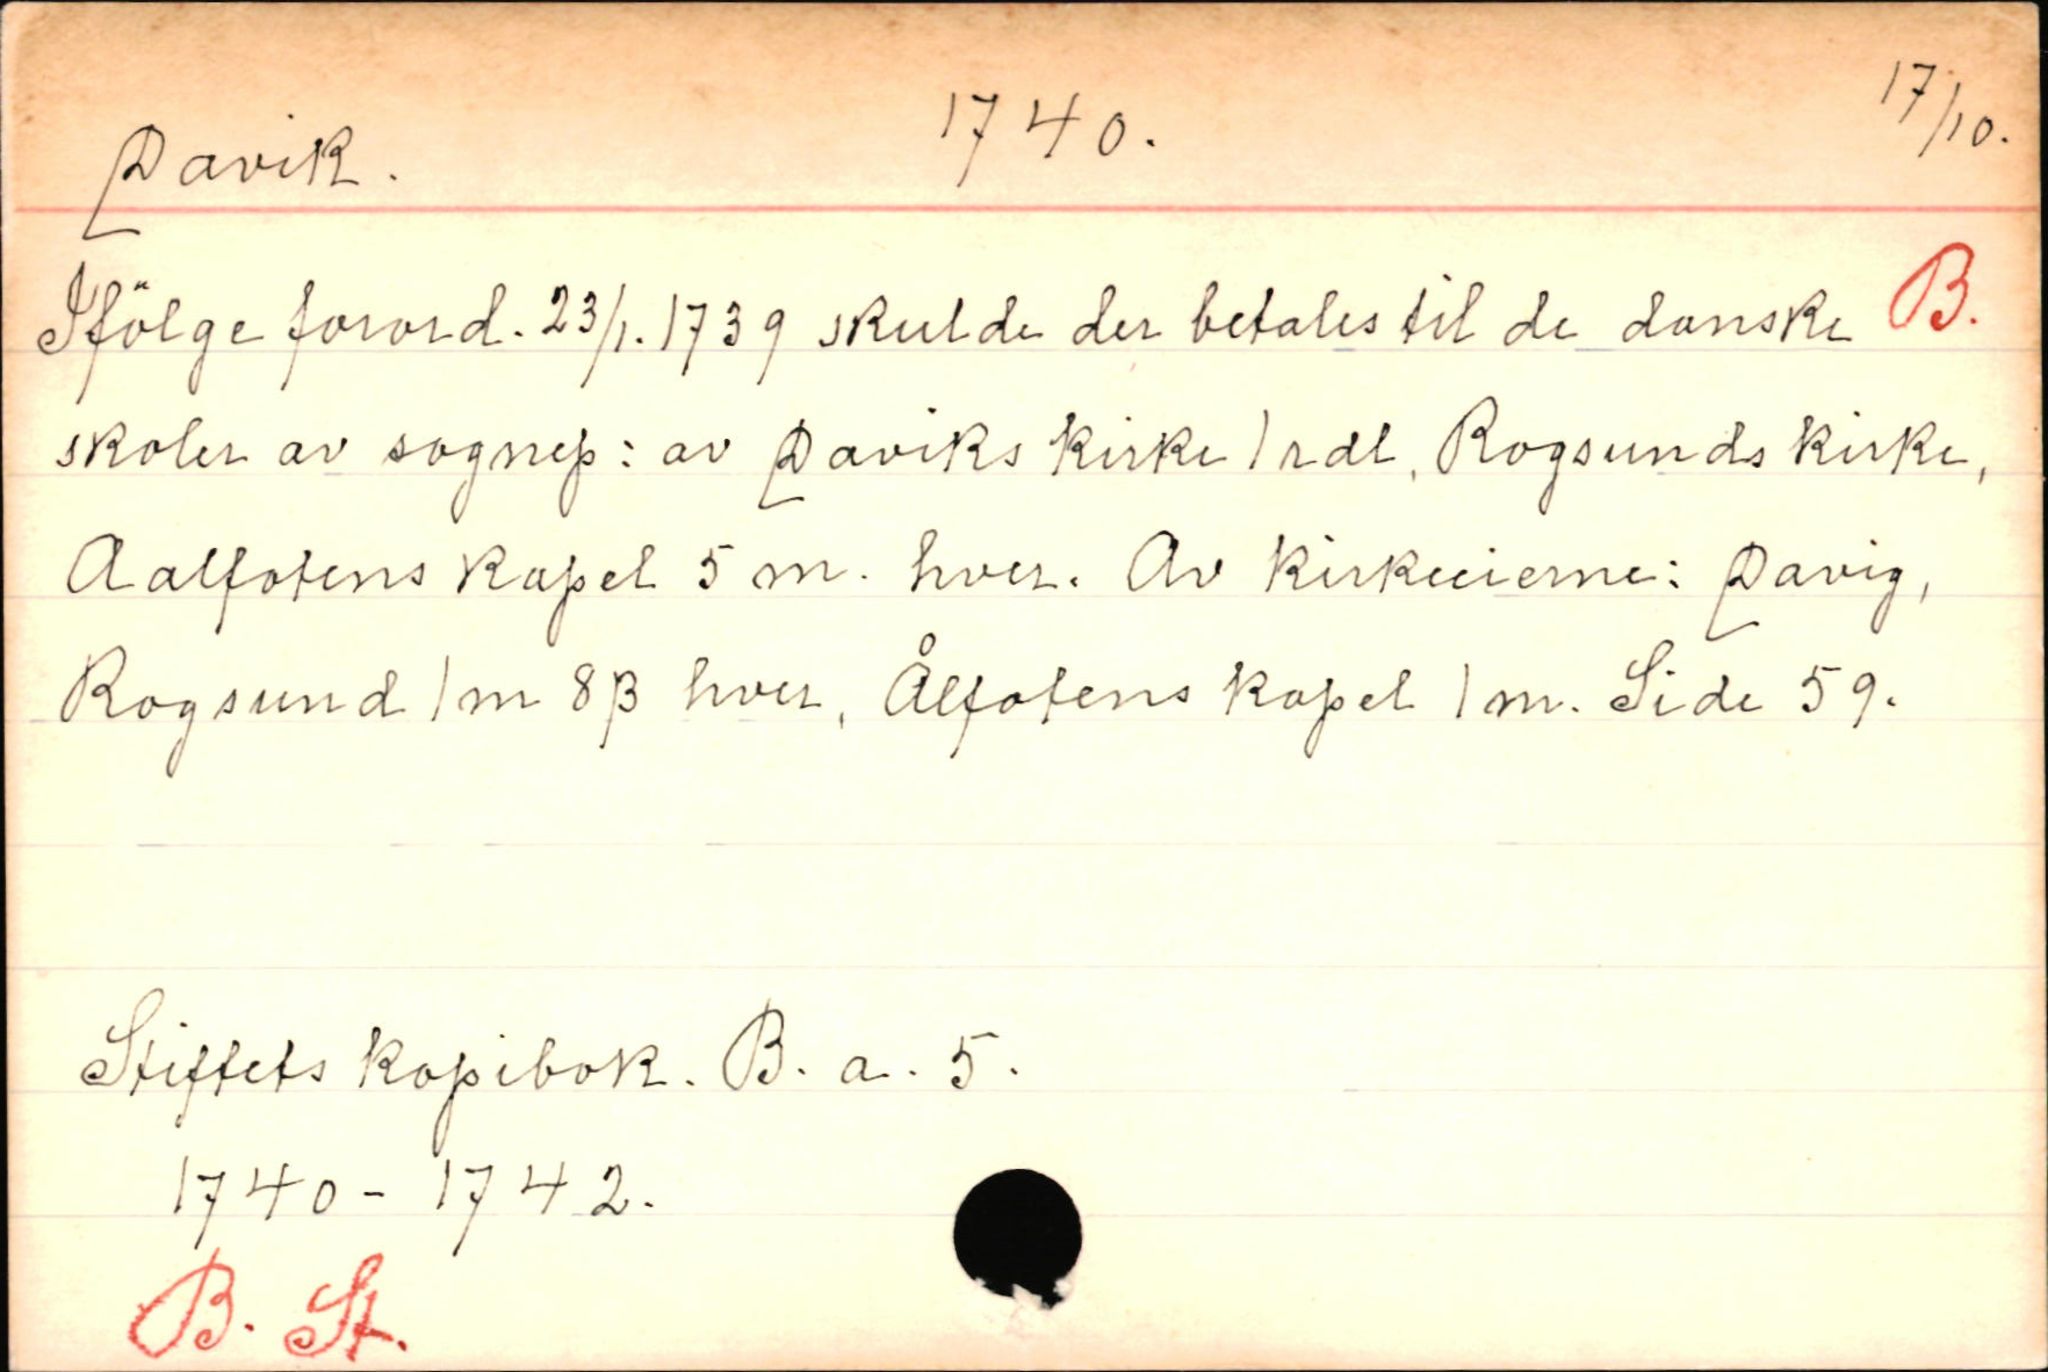 Davik. 1740. 17/10.
Ifölge forord. 23/1. 1739 skulde der betales til de danske B.
skoler av sognep: av Daviks kirke 1 rdl, Rogsunds kirke,
Aalfotens kapel 5 m. hver. Av kirkeeierne: Davig,
Rogsund 1 m 8 β hver, Ålfotens kapel 1 m. Side 59.
Stiftets kopibok. B. a. 5.
1740 - 1742.
B. St.